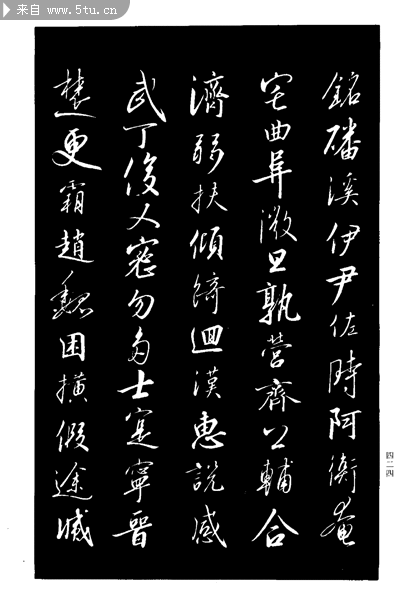 来自 www.5tu.cn
銘磻溪伊尹佐時阿衡奄
宅曲阜微旦孰營齊公輔合
濟弱扶傾綺迴漢惠說感
武丁俊乂密勿多士寔寧晉
楚更霸趙魏困橫假途滅
四二四